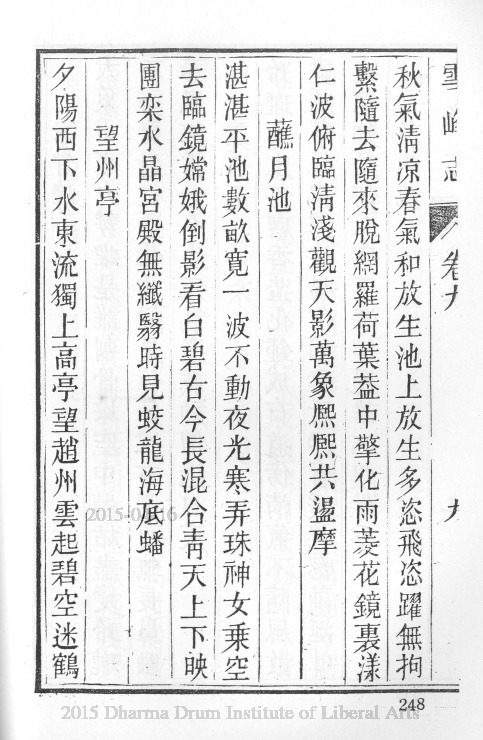 雪峰志 卷九 九
秋氣清凉春氣和放生池上放生多恣飛恣躍無拘
繫隨去隨來脫網羅荷葉葢中擎化雨菱花鏡裏漾
仁波俯臨清淺觀天影萬象熈熈共盪摩
蘸月池
湛湛平池數畝寬一波不動夜光寒弄珠神女乗空
去臨鏡嫦娥倒影看白碧古今長混合靑天上下映
團栾水晶宮殿無纖翳時見蛟龍海底蟠
望州亭
夕陽西下水東流獨上高亭望趙州雲起碧空迷鶴
248
2015 Dharma Drum Institute of Liberal Arts